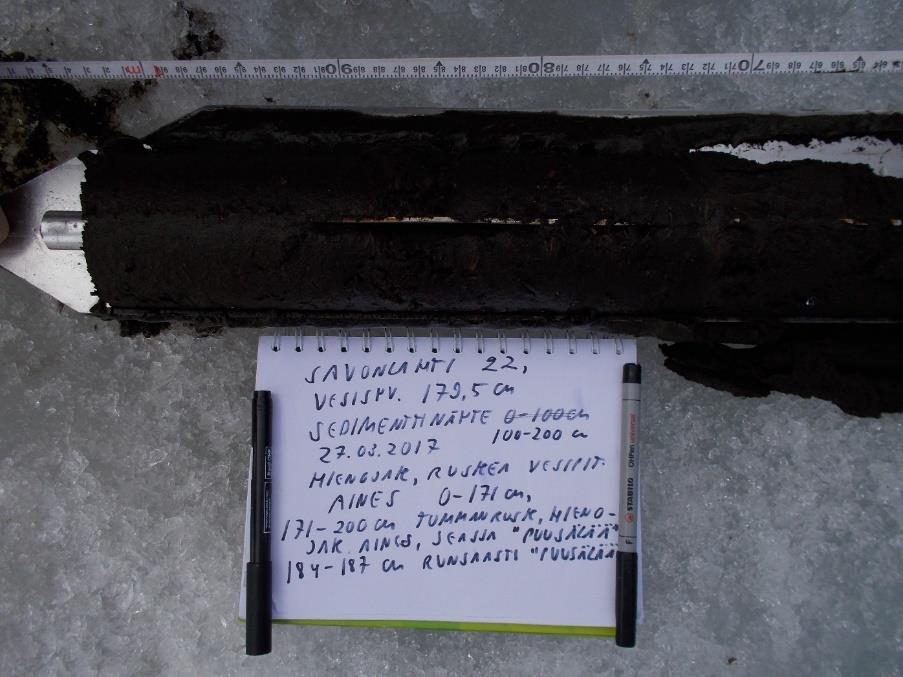 SAVONLAMTI 22,
VESISYV. 179,5 cm
SEDIMENTTINÄYTE 0-100cm
27.03.2017 100-200 cm
HIENOJAK, RUSKEA VESIPIT.
AINES 0-171 cm,
171-200 cm TUMMANRUSK, HIENO-
JAK. AINES, SEASSA "PUUSÄLÄÄ"
184-187 cm RUNSAASTI "PUUSÄLÄÄ"
STABILO OHPen universal F